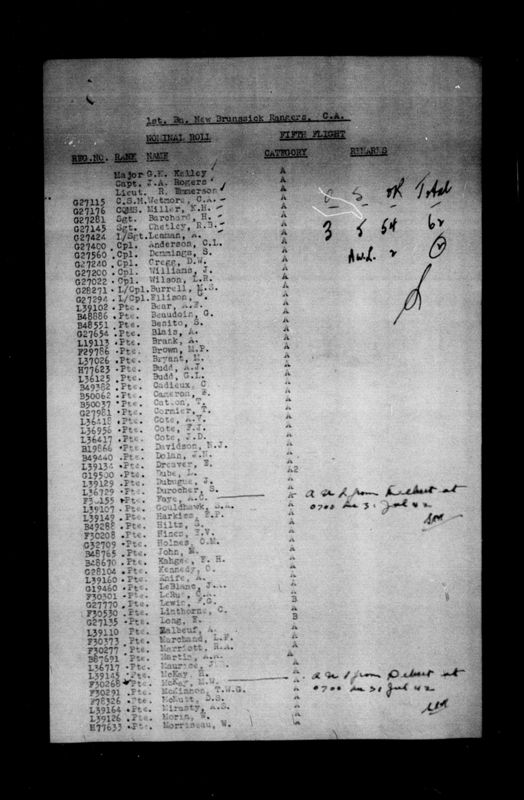 1st. Bn. New Brunssick Rangers, C.A.
NOMINAL ROLL FIFTH FLIGHT
REG.NO. RANK NAME CATEGORY REMARKS
Major G.E. Kelley A
Capt. J.A. Rogers A
Lieut. R. Emmerson A
O S OR Total
G27115 C.S.M. Wetmore, C.A. A
G27176 CQMS. Miller, K.H. A
G27281 Sgt. Barchard, H. A
G27145 Sgt. Chetley, R.S. A
3 5 54 62
G27424 L/Sgt. Leaman, A. A
G27400 Cpl. Anderson, C.L. A
G27560 Cpl. Demmings, S. A
A.W.L. 2
G27240 Cpl. Cregg, D.W. A
G27200 Cpl. Williams, J. A
G27022 Cpl. Wilson, L.R. A
G28271 L/Cpl. Burrell, M.S. A
G27294 L/Cpl. Ellison, A
L39102 Pte. Bear, A.E. A
B48886 Pte. Beaudoin, G. A
B48551 Pte. Benito, S. A
G27654 Pte. Blais, A. A
L19113 Pte. Brank, A. A
F29786 Pte. Brown, M.P. A
L37026 Pte. Bryant, M. A
H77623 Pte. Budd, A.J. A
L36125 Pte. Budd, G.L. A
B49382 Pte. Cadieux, C A
B50062 Pte. Cameron, A
B50037 Pte. Catton, T. A
G27981 Pte. Cormier, T. A
L36418 Pte. Cote, A.V. A
L36956 Pte. Cote, F.J. A
L36417 Pte. Cote, J.D. A
B19866 Pte. Davidson, N.J. A
B49440 Pte. Dolan, J.H. A
L39134 Pte. Dreaver, E. A
G19500 Pte. Dube, L. A2
L39129 Pte. Dubague, J. A
L36729 Pte. Durocher, S. A
Pte. Faye, A.C. A A W L from Debert at
L39107 Pte. Gouldhawk, S.A. A 0700 hrs 31 Jul 42
L39149 Pte. Harkies, E.P. A
B49288 Pte. Hiltz, A
F30208 Pte. Hines, E.V. A
G32709 Pte. Holmes, O.M. A
B48765 Pte. John, M. A
B48670 Pte. Kahgee, F. H. A
G28104 Pte. Kennedy, O. A
L39160 Pte. Knife, A. A
G19460 Pte. LeBlanc, J.A. A
F30301 Pte. LeRue, C.A. A
G27770 Pte. Lewis, F.G. B
F30530 Pte. Linthorne, C. A
G27135 Pte. Long, E. B
L39110 Pte. Malbeuf, A. A
F30373 Pte. Marchand, L.F. A
F30277 Pte. Marriott, R.A. A
B87691 Pte. Martin, A.A. A
L36717 Pte. Maurice, J.D. A
L39145 Pte. McKay, H. A A W L from Debert at
F30268 Pte. McKay, M.W. A 0700 hrs 31 Jul 42
F30291 Pte. McKinnon, T.W.G. A
F78326 Pte. McNutt, D.S. A
L39164 Pte. Mirasty, A.S. A
L39126 Pte. Morin, W. A
H77633 Pte. Morriseau, W. A